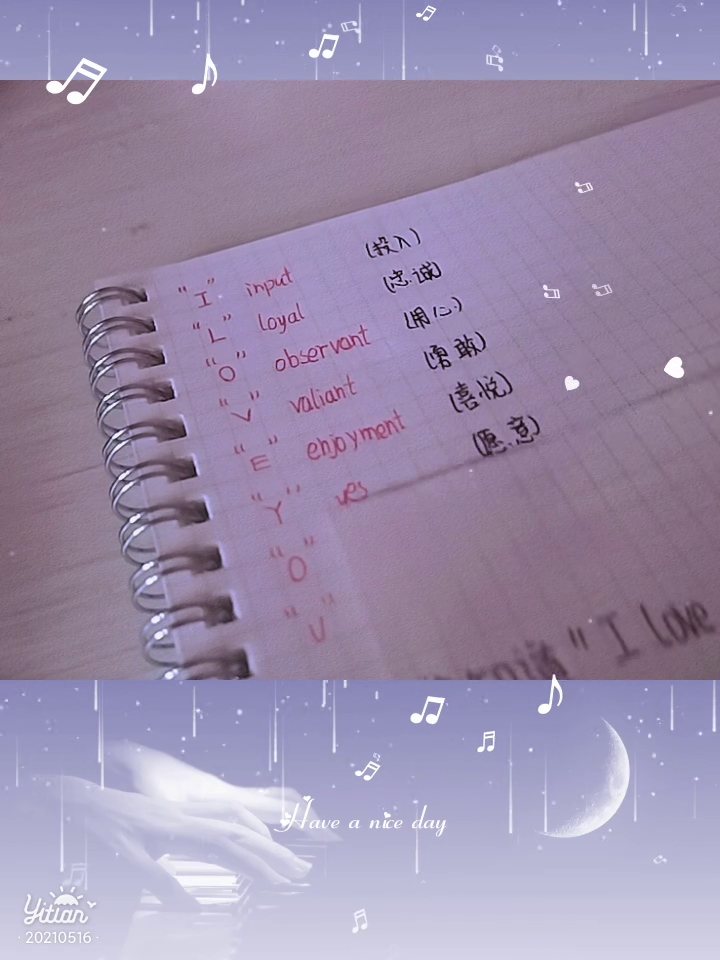 "I" input (投入)
"L" loyal (忠诚)
"O" observant (用心)
"V" valiant (勇敢)
"E" enjoyment (喜悦)
"Y" yes (愿意)
"O"
"U"
" I love
Have a nice day
Yitian
·20210516·